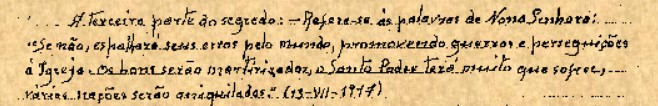 A terceira parte do segredo: – Refere-se às palavras de Nossa Senhora:
"Se não, espalhará seus erros pelo mundo, promovendo guerras e perseguições
à Igreja. Os bons serão martirizados, o Santo Padre terá muito que sofrer,
várias nações serão aniquiladas." (13-VII-1917)